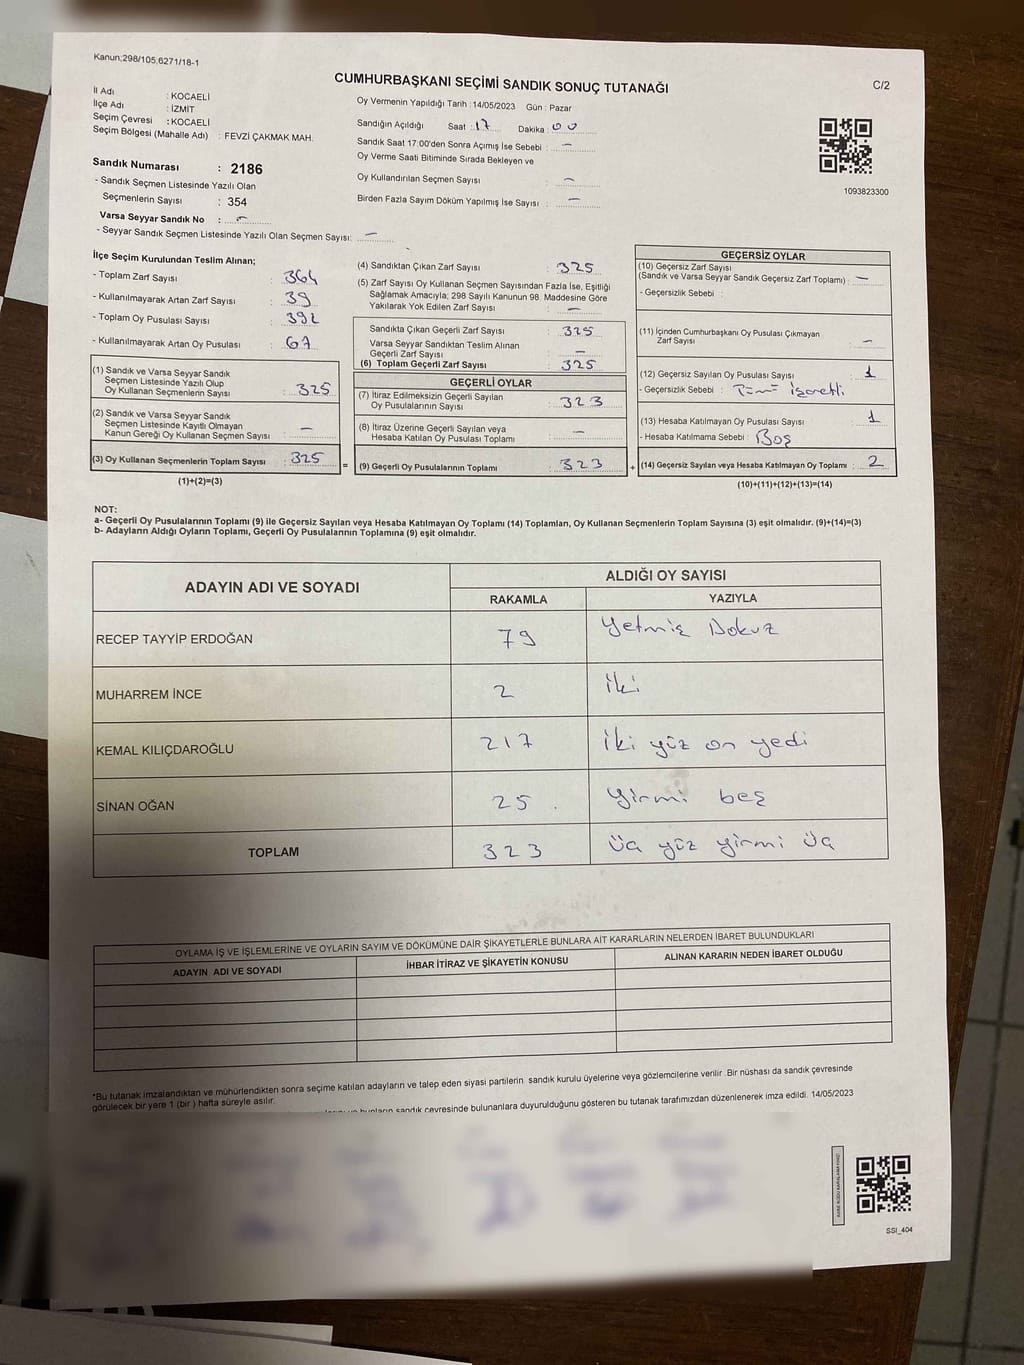 Kanun;298/105,6271/18-1
CUMHURBAŞKANI SEÇİMİ SANDIK SONUÇ TUTANAĞI
C/2
İl Adı : KOCAELİ
İlçe Adı : İZMİT
Seçim Çevresi : KOCAELİ
Seçim Bölgesi (Mahalle Adı) : FEVZİ ÇAKMAK MAH.
Sandık Numarası : 2186
- Sandık Seçmen Listesinde Yazılı Olan
Seçmenlerin Sayısı : 354
Varsa Seyyar Sandık No : -
- Seyyar Sandık Seçmen Listesinde Yazılı Olan Seçmen Sayısı: -
Oy Vermenin Yapıldığı Tarih : 14/05/2023 Gün : Pazar
Sandığın Açıldığı Saat : 17 Dakika : 00
Sandık Saat 17:00'den Sonra Açımış İse Sebebi : -
Oy Verme Saati Bitiminde Sırada Bekleyen ve
Oy Kullandırılan Seçmen Sayısı : -
Birden Fazla Sayım Döküm Yapılmış İse Sayısı : -
1093823300
İlçe Seçim Kurulundan Teslim Alınan;
- Toplam Zarf Sayısı : 364
- Kullanılmayarak Artan Zarf Sayısı : 39
- Toplam Oy Pusulası Sayısı : 392
- Kullanılmayarak Artan Oy Pusulası : 67
(1) Sandık ve Varsa Seyyar Sandık
Seçmen Listesinde Yazılı Olup
Oy Kullanan Seçmenlerin Sayısı : 325
(2) Sandık ve Varsa Seyyar Sandık
Seçmen Listesinde Kayıtlı Olmayan
Kanun Gereği Oy Kullanan Seçmen Sayısı : -
(3) Oy Kullanan Seçmenlerin Toplam Sayısı : 325
(1)+(2)=(3)
(4) Sandıktan Çıkan Zarf Sayısı : 325
(5) Zarf Sayısı Oy Kullanan Seçmen Sayısından Fazla İse, Eşitliği
Sağlamak Amacıyla; 298 Sayılı Kanunun 98. Maddesine Göre
Yakılarak Yok Edilen Zarf Sayısı : -
Sandıkta Çıkan Geçerli Zarf Sayısı : 325
Varsa Seyyar Sandıktan Teslim Alınan
Geçerli Zarf Sayısı : -
(6) Toplam Geçerli Zarf Sayısı : 325
GEÇERLİ OYLAR
(7) İtiraz Edilmeksizin Geçerli Sayılan
Oy Pusulalarının Sayısı : 323
(8) İtiraz Üzerine Geçerli Sayılan veya
Hesaba Katılan Oy Pusulası Toplamı : -
= (9) Geçerli Oy Pusulalarının Toplamı : 323
GEÇERSİZ OYLAR
(10) Geçersiz Zarf Sayısı
(Sandık ve Varsa Seyyar Sandık Geçersiz Zarf Toplamı) : -
- Geçersizlik Sebebi :
(11) İçinden Cumhurbaşkanı Oy Pusulası Çıkmayan
Zarf Sayısı : -
(12) Geçersiz Sayılan Oy Pusulası Sayısı : 1
- Geçersizlik Sebebi : Tümü işaretli
(13) Hesaba Katılmayan Oy Pusulası Sayısı : 1
- Hesaba Katılmama Sebebi : Boş
+ (14) Geçersiz Sayılan veya Hesaba Katılmayan Oy Toplamı : 2
(10)+(11)+(12)+(13)=(14)
NOT:
a- Geçerli Oy Pusulalarının Toplamı (9) ile Geçersiz Sayılan veya Hesaba Katılmayan Oy Toplamı (14) Toplamları, Oy Kullanan Seçmenlerin Toplam Sayısına (3) eşit olmalıdır. (9)+(14)=(3)
b- Adayların Aldığı Oyların Toplamı, Geçerli Oy Pusulalarının Toplamına (9) eşit olmalıdır.
ADAYIN ADI VE SOYADI
ALDIĞI OY SAYISI
RAKAMLA YAZIYLA
RECEP TAYYİP ERDOĞAN 79 Yetmiş Dokuz
MUHARREM İNCE 2 iki
KEMAL KILIÇDAROĞLU 217 iki yüz on yedi
SİNAN OĞAN 25 Yirmi beş
TOPLAM 323 üç yüz yirmi üç
OYLAMA İŞ VE İŞLEMLERİNE VE OYLARIN SAYIM VE DÖKÜMÜNE DAİR ŞİKAYETLERLE BUNLARA AİT KARARLARIN NELERDEN İBARET BULUNDUKLARI
ADAYIN ADI VE SOYADI İHBAR İTİRAZ VE ŞİKAYETİN KONUSU ALINAN KARARIN NEDEN İBARET OLDUĞU
*Bu tutanak imzalandıktan ve mühürlendikten sonra seçime katılan adayların ve talep eden siyasi partilerin sandık kurulu üyelerine veya gözlemcilerine verilir .Bir nüshası da sandık çevresinde
görülecek bir yere 1 (bir ) hafta süreyle asılır.
bunların sandık çevresinde bulunanlara duyurulduğunu gösteren bu tutanak tarafımızdan düzenlenerek imza edildi. 14/05/2023
SSI_404